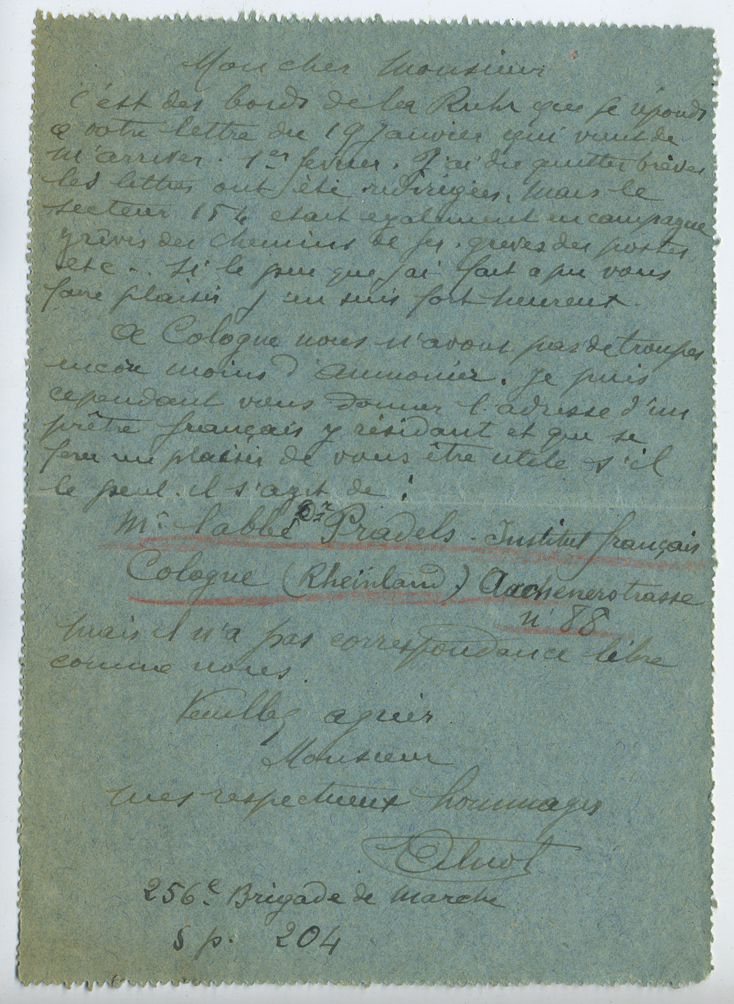 Mon cher Monsieur
C'est des bords de la Ruhr que je réponds
a votre lettre du 19 Janvier qui vient de
m'arriver. 1er fevrier. J'ai du quitter Trèves
les lettres ont été redirigées, mais le
secteur 154 etait egalement en campagne
grèves des chemins de fer. greves des postes
etc.. Si le peu que j'ai fait a pu vous
faire plaisir j'en suis fort heureux.
A Cologne nous n'avons pas de troupes
encore moins d'aumonier. Je puis
cependant vous donner l'adresse d'un
prêtre français y résidant et qui se
fera un plaisir de vous être utile s'il
le peut. il s'agit de :
Mr l'abbé Dr Pradels. Institut français
Cologne (Rheinland.) Aachenerstrasse
n° 88
Mais il n'a pas correspondance libre
comme nous.
Veuillez agréer
Monsieur
mes respectueux hommages
256e Brigade de Marche
S p. 204